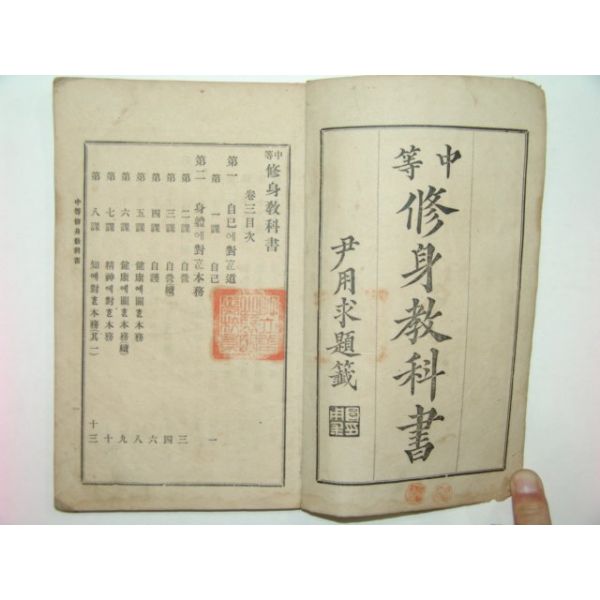 中等 修身教科書
尹用求題籤
中等 修身教科書
卷三目次
第一 自己에對ᄒᆞᄂᆞᆫ道
第一課 自己 一
第二 身體에對ᄒᆞᄂᆞᆫ本務
第二課 自養 三
第三課 自養(續) 四
第四課 自護 六
第五課 健康에關ᄒᆞᆫ本務 八
第六課 健康에關ᄒᆞᆫ本務(續) 九
第七課 精神에對ᄒᆞᆫ本務 十
第八課 知에對ᄒᆞᆫ本務(其一) 十三
中等修身教科書